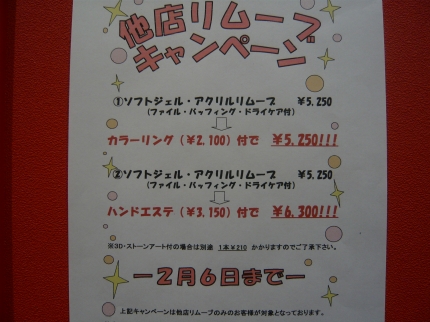 他店リムーブ
キャンペーン
①ソフトジェル・アクリルリムーブ ￥5,250
(ファイル・バッフィング・ドライケア付)
カラーリング(￥2,100)付で ￥5,250!!!
②ソフトジェル・アクリルリムーブ ￥5,250
(ファイル・バッフィング・ドライケア付)
ハンドエステ(￥3,150)付で ￥6,300!!!
※3D・ストーンアート付の場合は別途 1本￥210 かかりますのでご了承下さい。
―2月6日まで―
上記キャンペーンは他店リムーブのみのお客様が対象となっております。